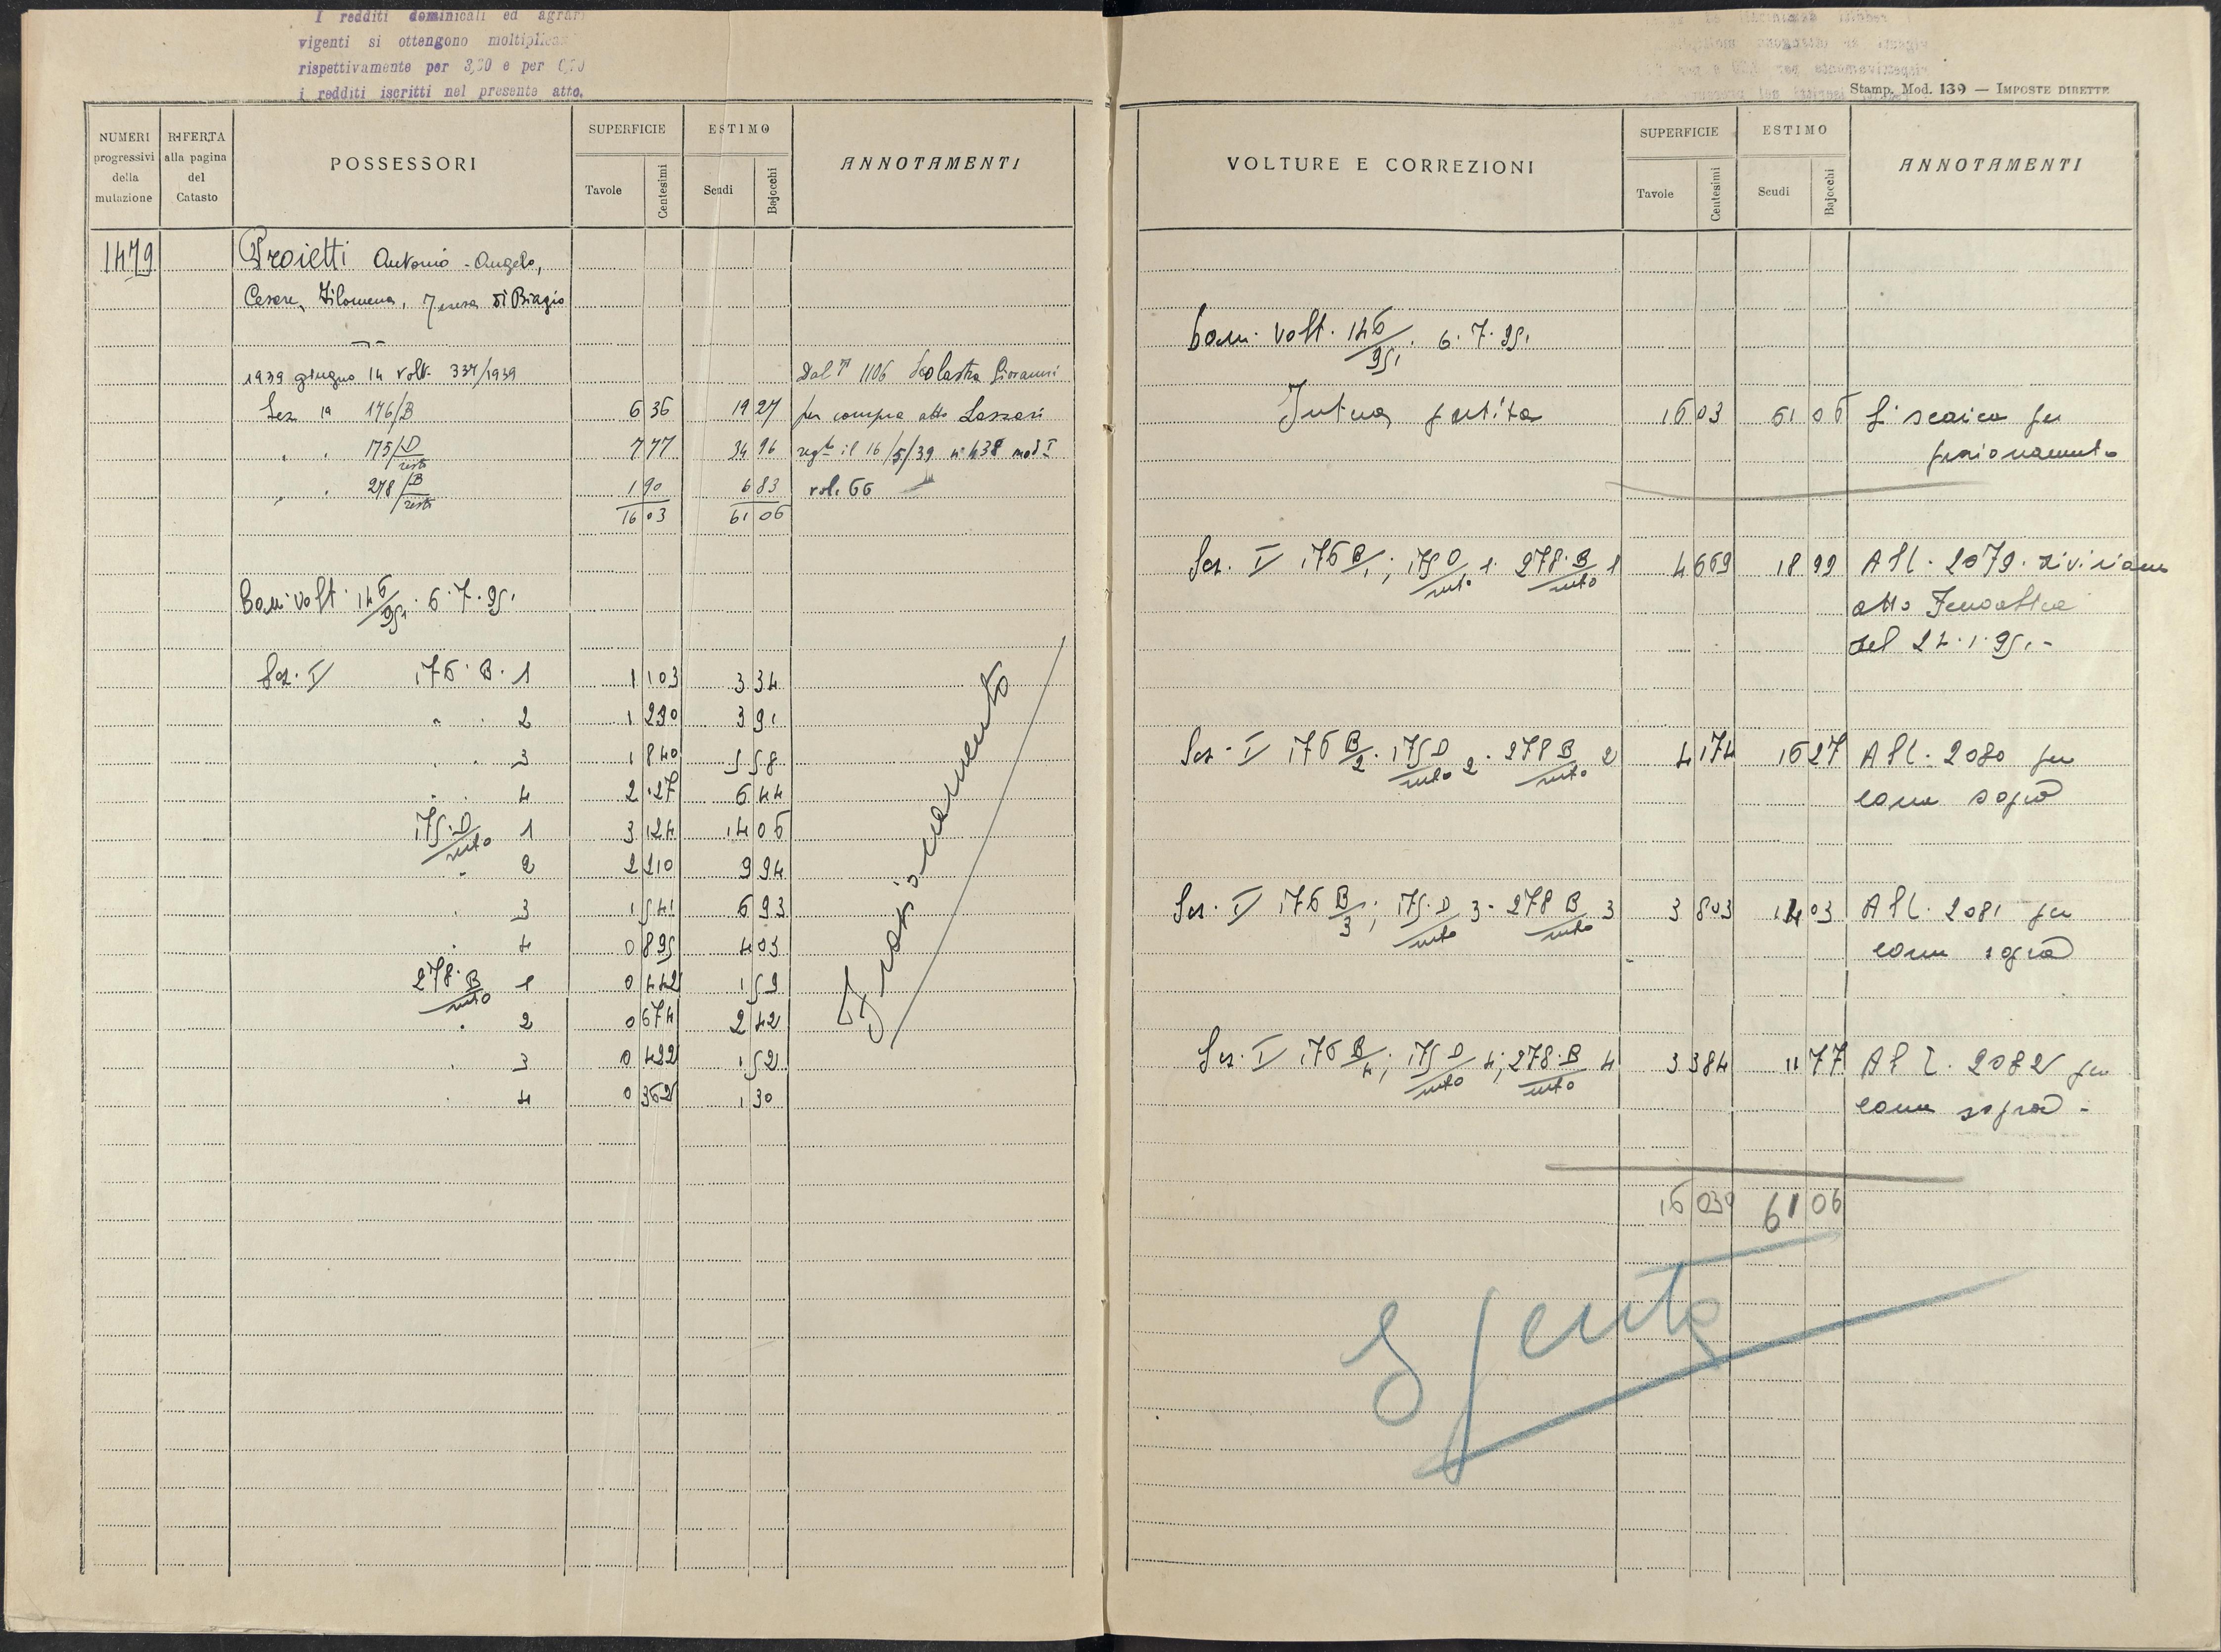 I redditi dominicali ed agrari
vigenti si ottengono moltiplican
rispettivamente per 3,30 e per
i redditi iscritti nel presente atto.
NUMERI progressivi della mutazione
RIFERTA alla pagina del Catasto
POSSESSORI
SUPERFICIE
Tavole
Centesimi
ESTIMO
Scudi
Bajocchi
ANNOTAMENTI
1479 Proietti Antonio - Angelo,
Cesare, Filomena, Teresa di Biagio
1939 giugno 14 volt. 334/1939 Dal N 1106 Scolastra Giovanni
Sez 1a 176/B 6 36 19 27 per compra atto Lazzari
" " 175/D resto 7 77 34 96 regto il 16/5/39 n° 438 mod I
" " 278/B resto 1 90 6 83 vol. 66
16 03 61 06
Cam. volt. 146/951. 6.7.951
Sez. I 176. B. 1 1 103 3 34
" . 2 1 290 3 91
" . 3 1 840 5 58
" . 4 2 127 6 44
175. D resto 1 3 124 14 06
" 2 2 210 9 94
" 3 1 541 6 93
" 4 0 895 4 03
278. B resto 1 0 442 1 59
" 2 0 674 2 42
" 3 0 422 1 52
" 4 0 362 1 30
Frazionamento
Stamp. Mod. 139 — IMPOSTE DIRETTE
VOLTURE E CORREZIONI
SUPERFICIE
Tavole
Centesimi
ESTIMO
Scudi
Bajocchi
ANNOTAMENTI
Cam. Volt. 146/951. 6.7.951
Intera partita 16 03 61 06 Si scarica per
frazionamento
Sez. I 176 B/1; 175 D resto 1. 278. B resto 1 4 669 18 99 All. 2079. divisione
atto
del 24.1.951.-
Sez. I 176 B/2. 175 D resto 2. 278 B resto 2 4 174 16 27 All. 2080 per
come sopra
Sez. I 176 B/3; 175. D resto 3. 278 B resto 3 3 803 14 03 All. 2081 per
come sopra
Sez. I 176 B/4; 175 D resto 4; 278. B resto 4 3 384 11 77 All. 2082 per
come sopra -
16 030 61 06
Spenta